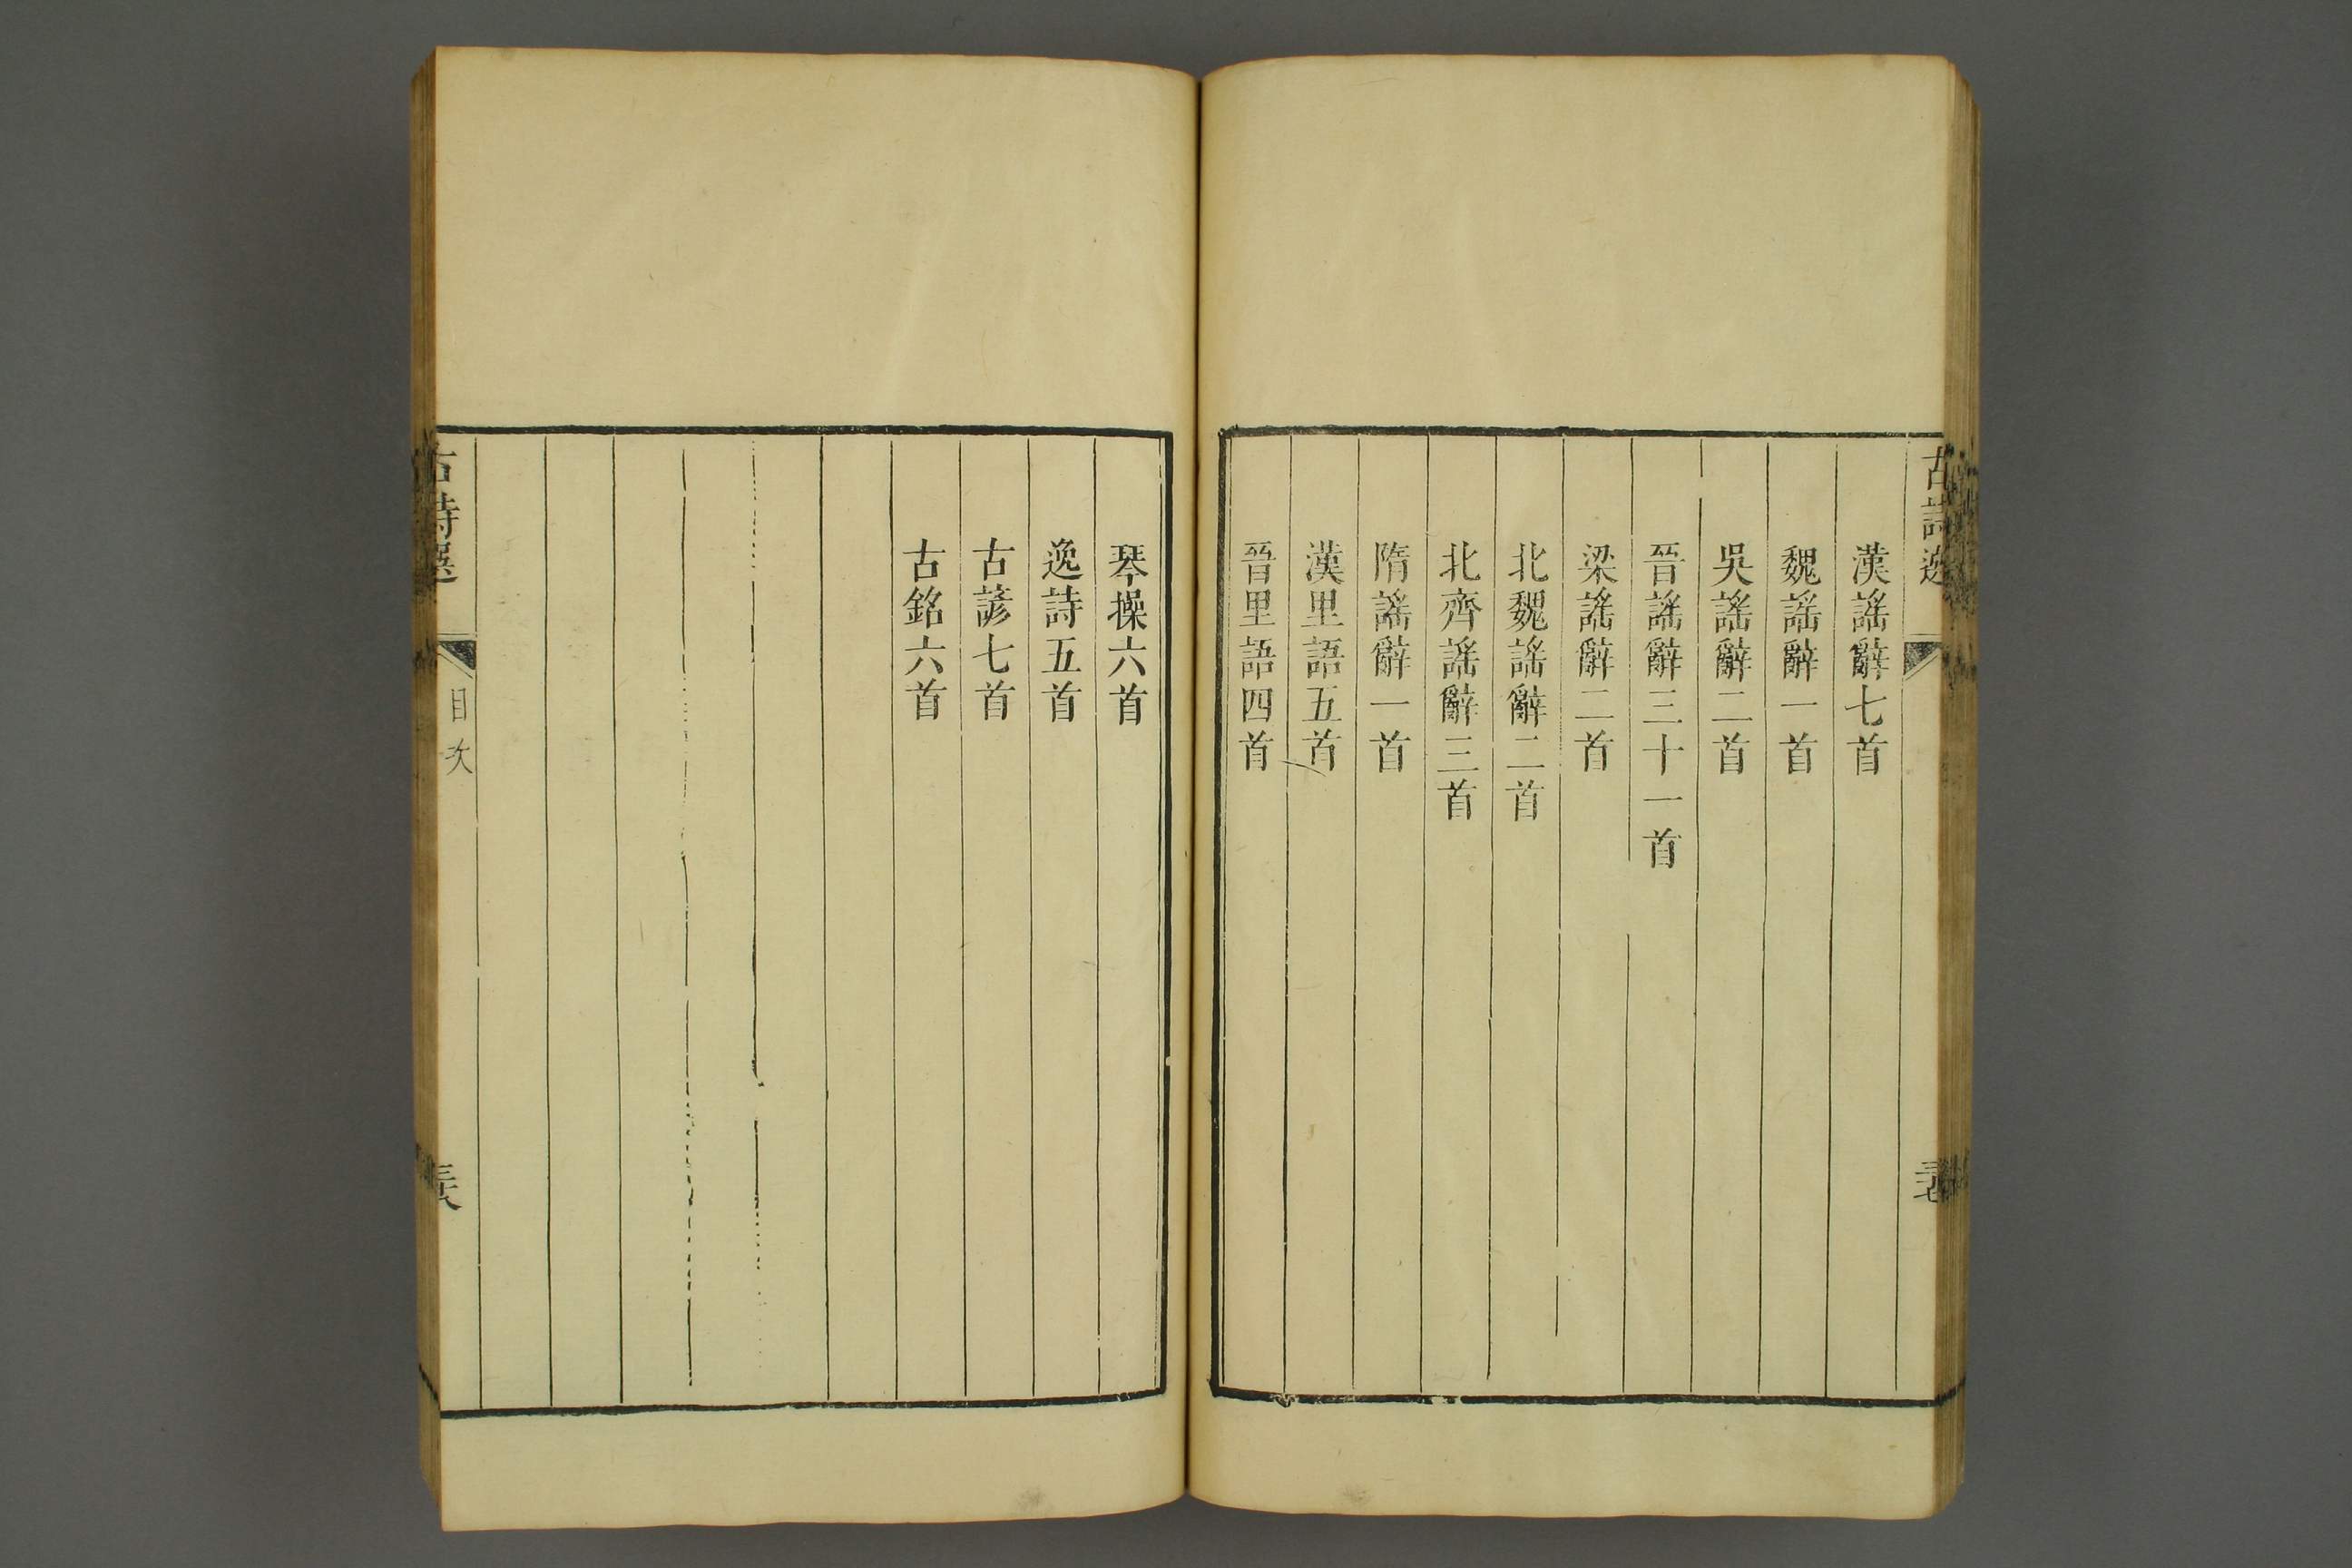 古詩選
漢謡辭七首
魏謡辭一首
吳謡辭二首
晉謡辭三十一首
梁謡辭二首
北魏謡辭二首
北齊謡辭三首
隋謡辭一首
漢里語五首
晉里語四首
琴操六首
逸詩五首
古諺七首
古銘六首
古詩選
目次